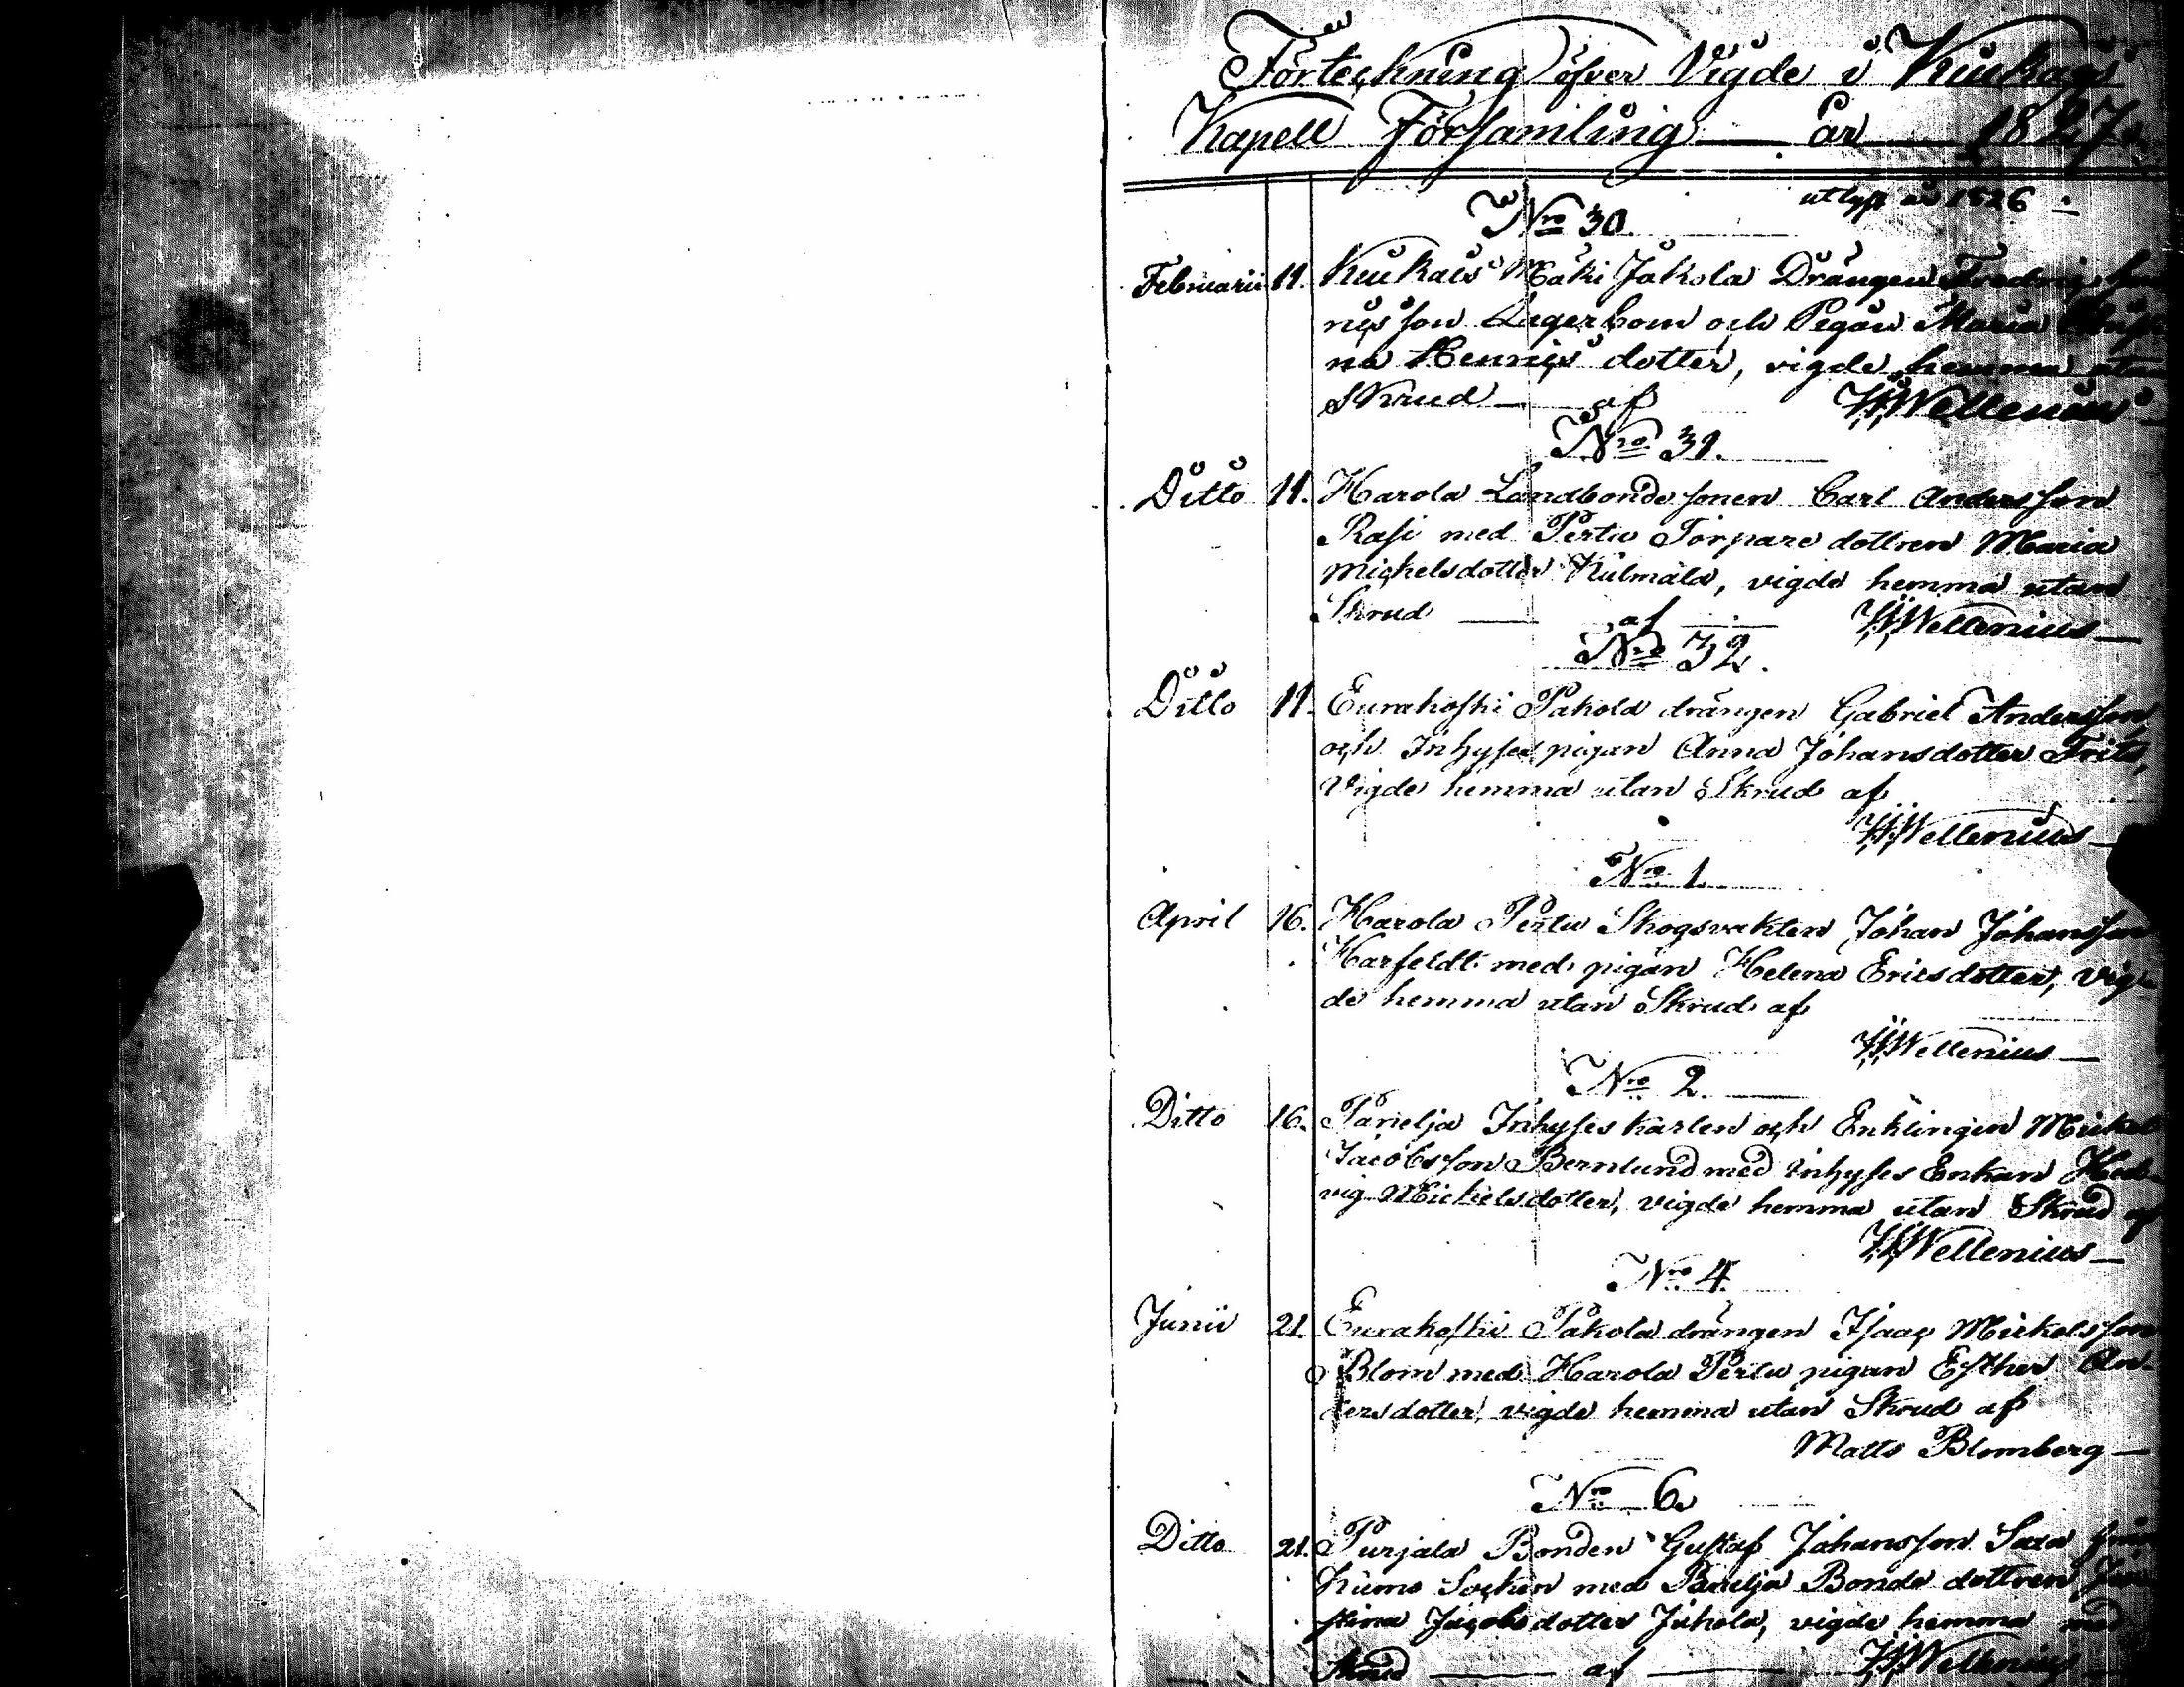 Förteckning öfver Vigde i Kiukais
Kapell Församling — år — 1827.
utlyst år 1826
Nro 30.
Februarii 11. Kiukais Mäki Jakola Drängen Fredric
son Lagerbom och Pigan Maria
na Hennis dotter, vigde hemma utan
Skrud — af HWellenius
Nro 31.
Ditto 11. Harola Landbonde sonen Carl Andersson
Rasi med Pertu Torpare dottren Maria
Michelsdotter Kulmala, vigde hemma utan
Skrud — af — HWellenius —
Nro 32.
Ditto 11. Eurakoski Pakola drängen Gabriel Andersson
och Inhyses pigan Anna Johansdotter Frits,
Vigde hemma utan Skrud af
HWellenius —
Nro 1.
April 16. Harola Pertu Skogsvakten Johan Johansson
Harfeldt med pigan Helena Ericsdotter, vig-
de hemma utan Skrud af
HWellenius —
Nro 2.
Ditto 16. Panelja Inhyses karlen och Enklingen Mickel
Jacobsson Bernlund med inhyses Enkan Hed-
vig Mickelsdotter, vigde hemma utan Skrud af
HWellenius —
Nro 4.
Junii 21. Eurakoski Pakola drängen Isaac Mickelsson
Blom med Harola Pertu pigan Esther An-
dersdotter, vigde hemma utan Skrud af
Matts Blomberg —
Nro 6.
Ditto 21. Purjala Bonden Gustaf Johansson Saxa från
Kumo Socken med Panelja Bonde dottren
stina Jacobsdotter Juhola, vigde hemma med
Skrud — af — HWellenius